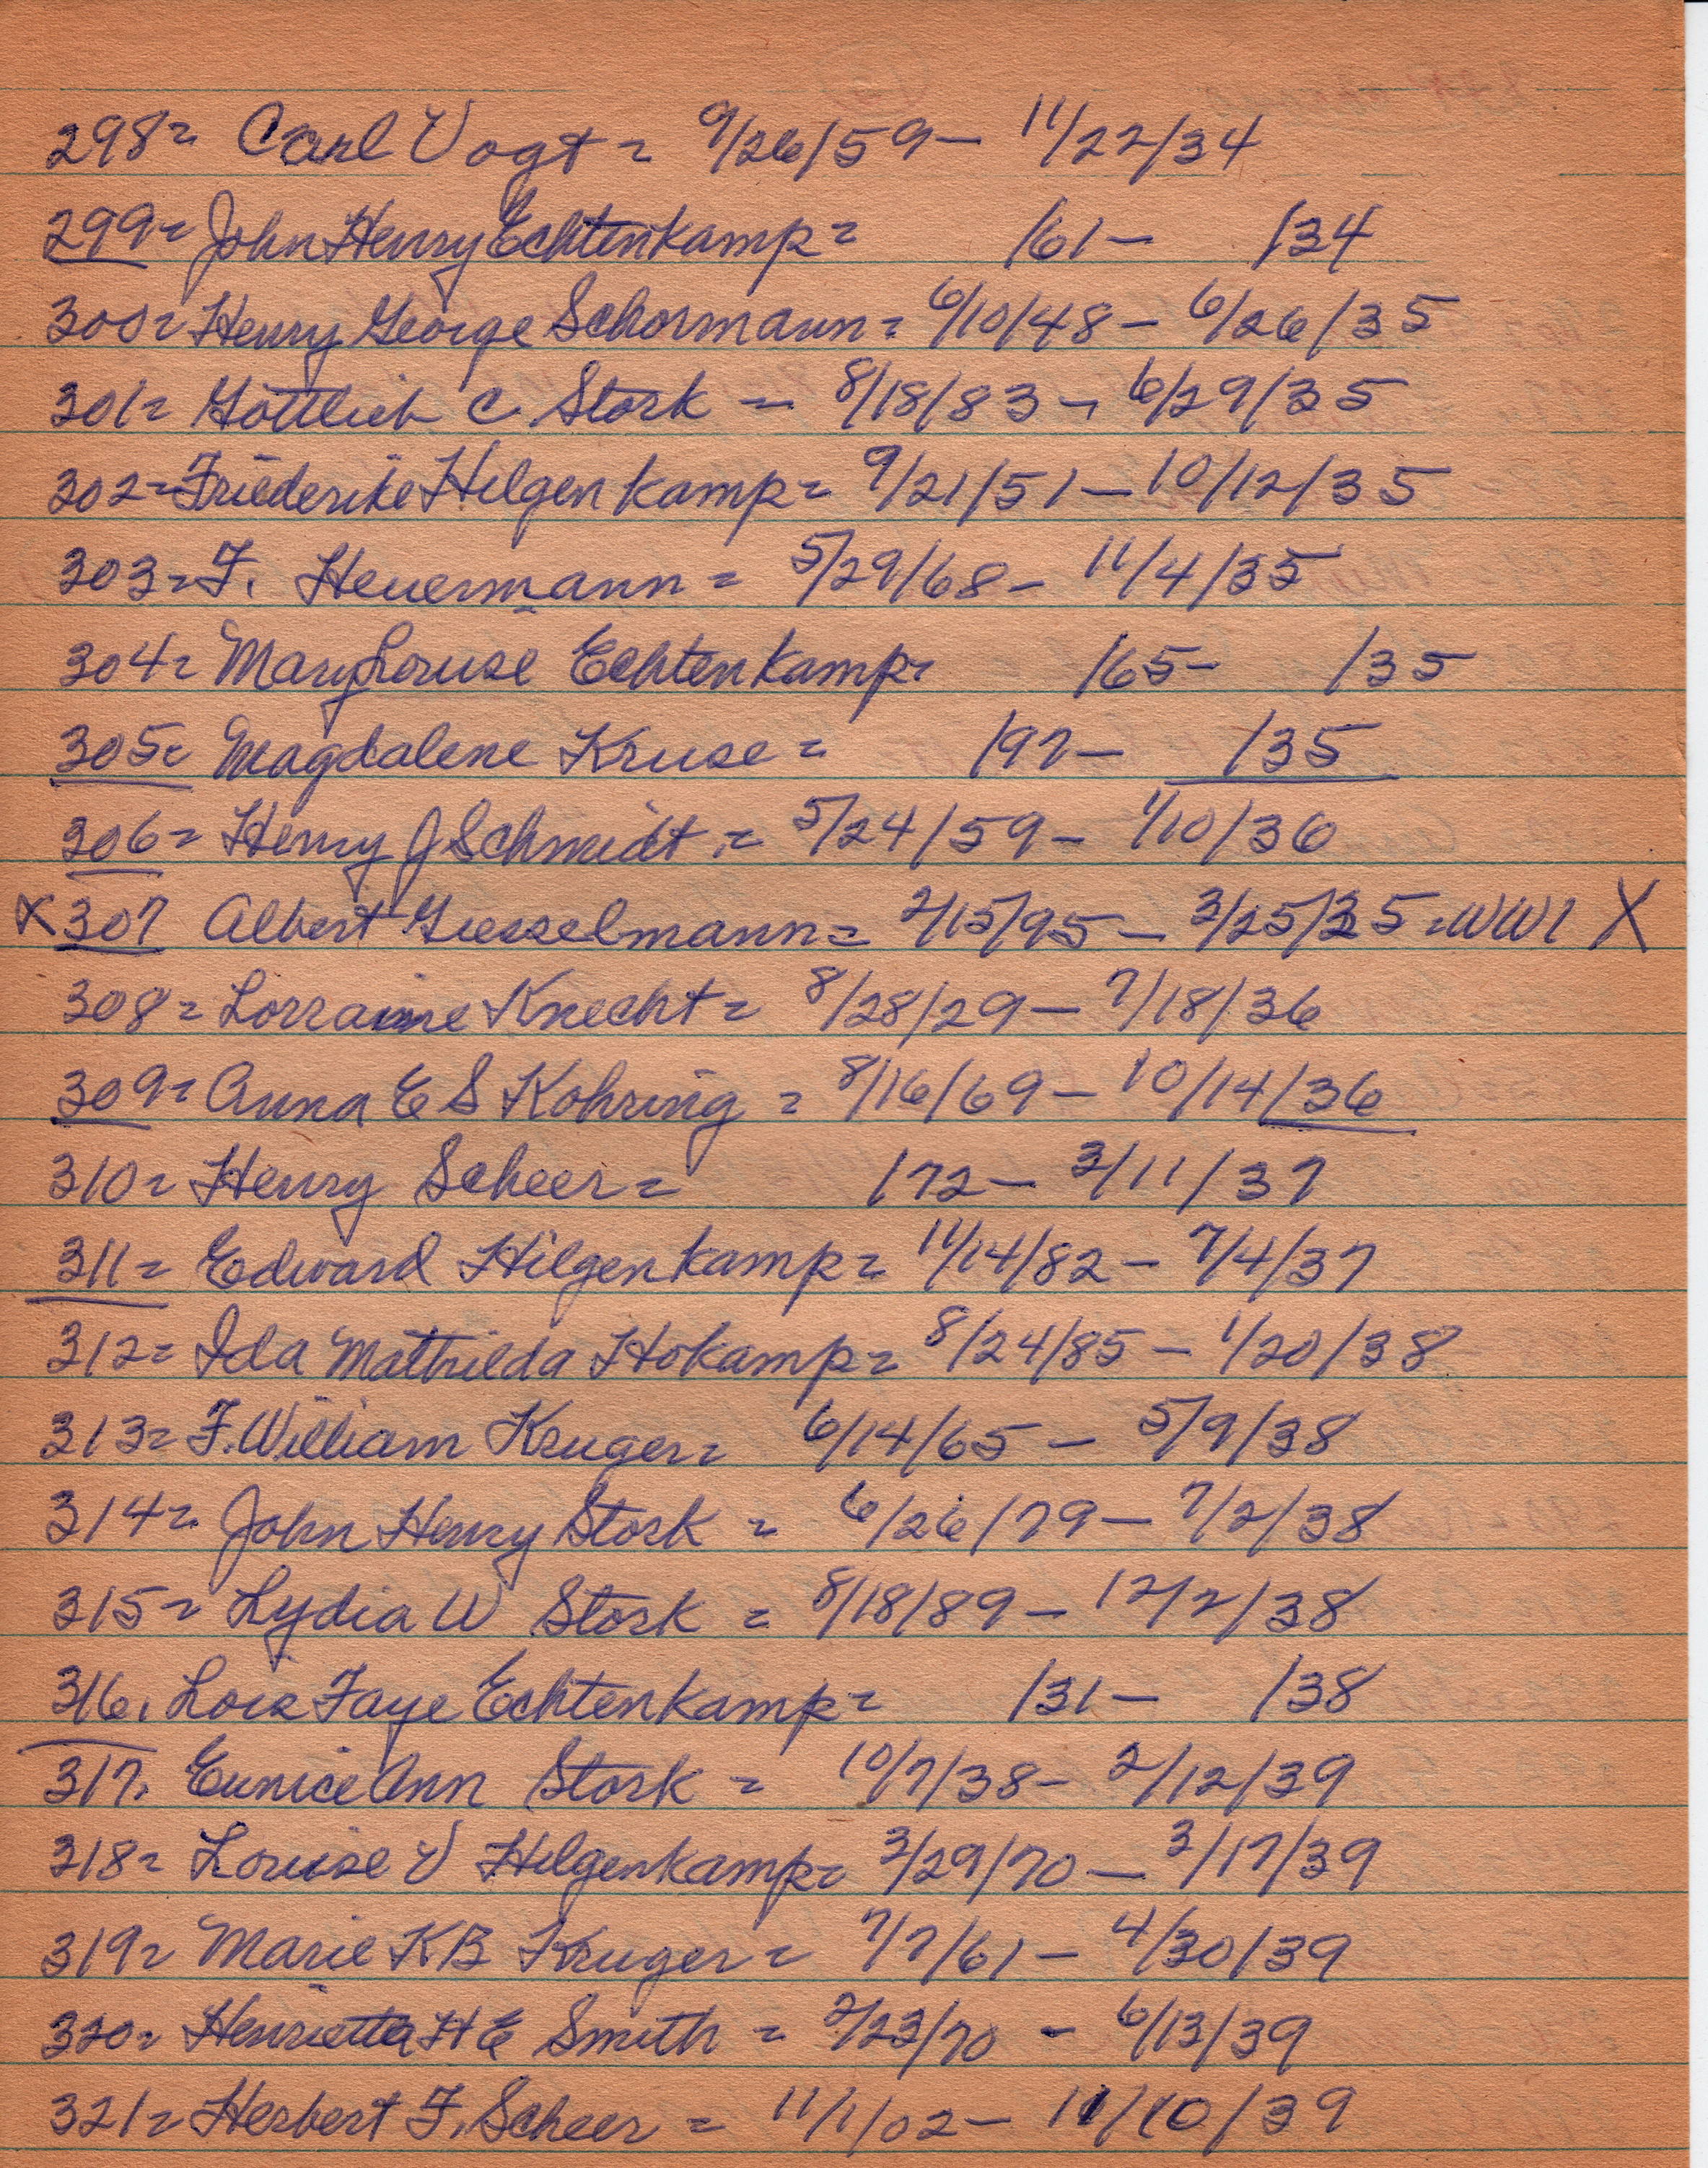 298= Carl V Vogt = 9/26/59 - 11/22/34
299= John Henry Echtenkamp = /61 - /34
300= Henry George Schormann = 6/10/48 - 6/26/35
301= Gottlieb C. Stork - 8/18/83 - 6/29/35
302= Friederike Hilgenkamp = 9/21/51 - 10/12/35
303= F. Heuermann = 5/29/68 - 11/4/35
304= Mary Louise Echtenkamp = /65 - /35
305= Magdalene Kruse = /97 - /35
306= Henry J Schmidt = 5/24/59 - 1/10/36
X 307 Albert Giesselmann = 2/15/95 - 3/25/35 = WW1 X
308= Lorraine Knecht = 8/28/29 - 7/18/36
309= Anna E S Kohring = 8/16/69 - 10/14/36
310= Henry Scheer = /72 - 3/11/37
311= Edward Hilgenkamp = 11/14/82 - 7/4/37
312= Ida Mathilda Hokamp = 8/24/85 - 1/20/38
313= F. William Kruger = 6/14/65 - 5/9/38
314= John Henry Stork = 6/26/79 - 7/2/38
315= Lydia W Stork = 8/18/89 - 12/2/38
316. Lois Faye Echtenkamp = /31 - /38
317. Eunice Ann Stork = 10/7/38 - 2/12/39
318= Louise V Hilgenkamp = 3/29/70 - 3/17/39
319= Marie K B Kruger = 7/7/61 - 4/30/39
320= Henrietta H E Smith = 2/23/70 - 6/13/39
321= Herbert F. Scheer = 11/1/02 - 11/10/39